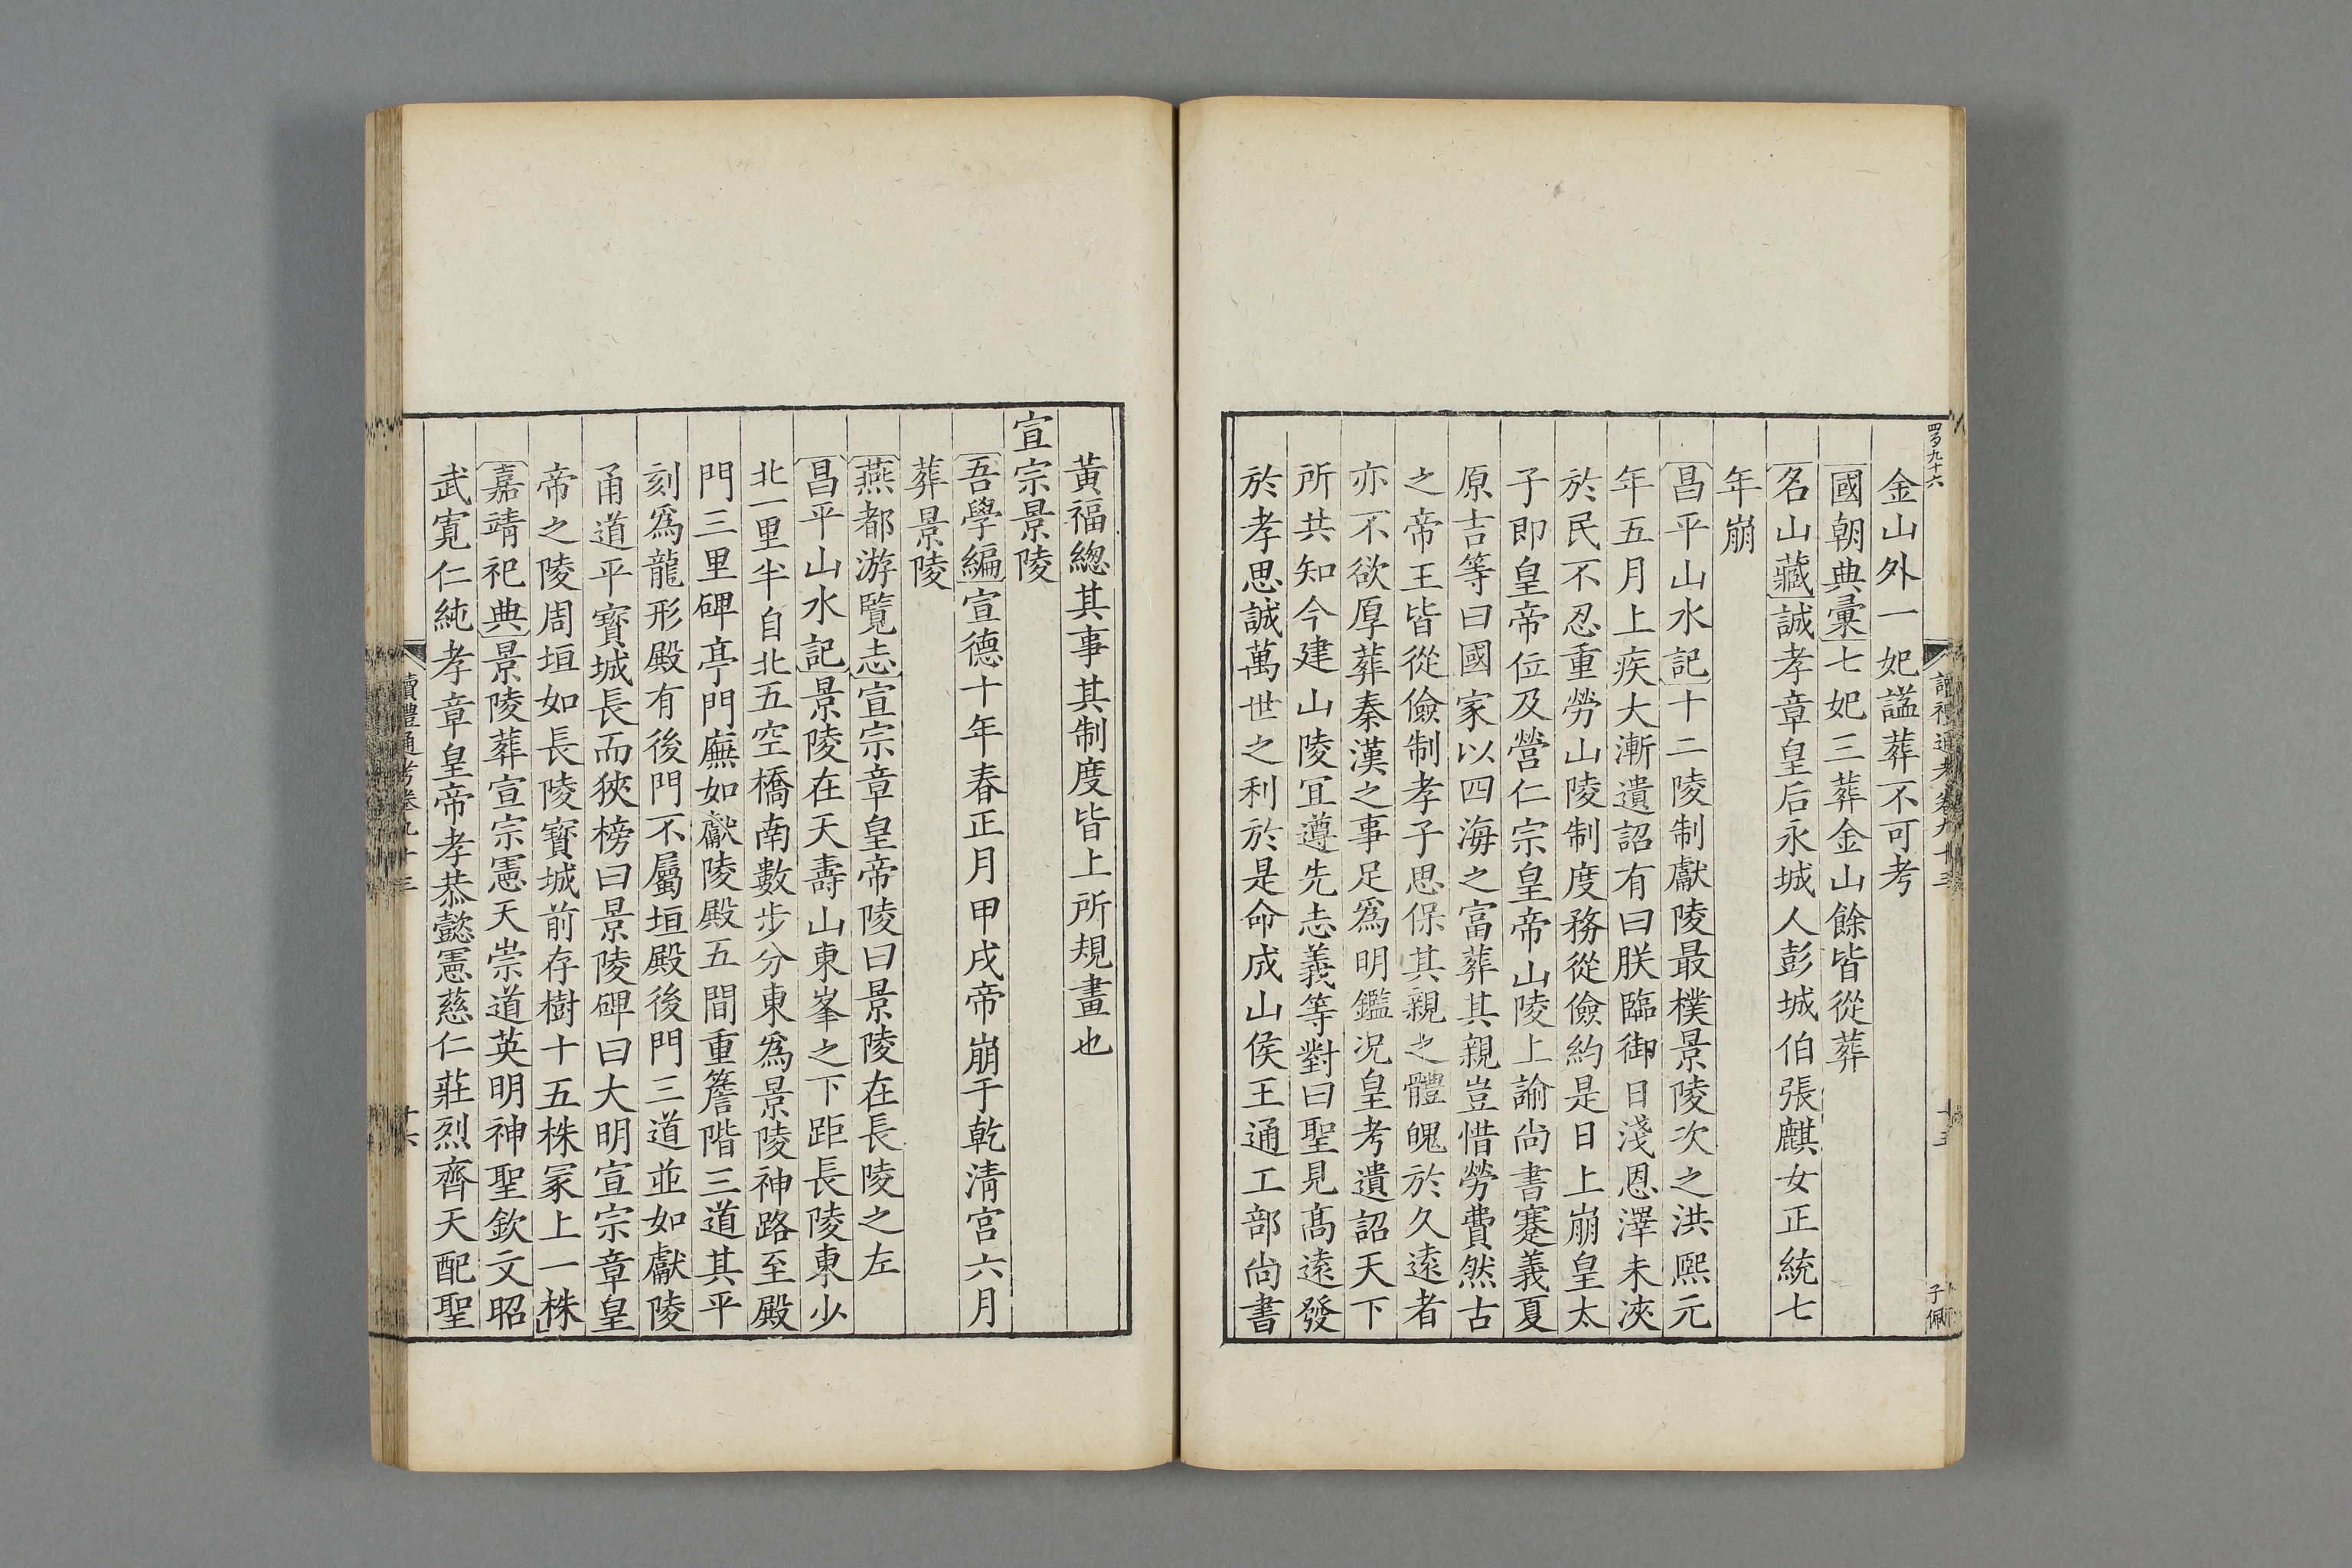 金山外一妃諡葬不可考
國朝典彙七妃三葬金山餘皆從葬
名山藏誠孝章皇后永城人彭城伯張麒女正統七
年崩
昌平山水記十二陵制獻陵最樸景陵次之洪熙元
年五月上疾大漸遺詔有曰朕臨御日淺恩澤未浹
於民不忍重勞山陵制度務從儉約是日上崩皇太
子即皇帝位及營仁宗皇帝山陵上諭尚書蹇義夏
原吉等曰國家以四海之富葬其親豈惜勞費然古
之帝王皆從儉制孝子思保其親之體魄於久遠者
亦不欲厚葬秦漢之事足爲明鑑况皇考遺詔天下
所共知今建山陵冝遵先志義等對曰聖見髙遠發
於孝思誠萬世之利於是命成山侯王通工部尚書
黃福總其事其制度皆上所規畫也
宣宗景陵
吾學編宣德十年春正月甲戌帝崩于乾清宮六月
葬景陵
燕都游覽志宣宗章皇帝陵曰景陵在長陵之左
昌平山水記景陵在天壽山東峯之下距長陵東少
北一里半自北五空橋南數步分東爲景陵神路至殿
門三里碑亭門廡如獻陵殿五間重簷階三道其平
刻爲龍形殿有後門不屬垣殿後門三道並如獻陵
甬道平寳城長而狹榜曰景陵碑曰大明宣宗章皇
帝之陵周垣如長陵寳城前存樹十五株冢上一株
嘉靖祀典景陵葬宣宗憲天崇道英明神聖欽文昭
武寬仁純孝章皇帝孝恭懿憲慈仁莊烈齊天配聖
讀禮通考卷九十三
十六